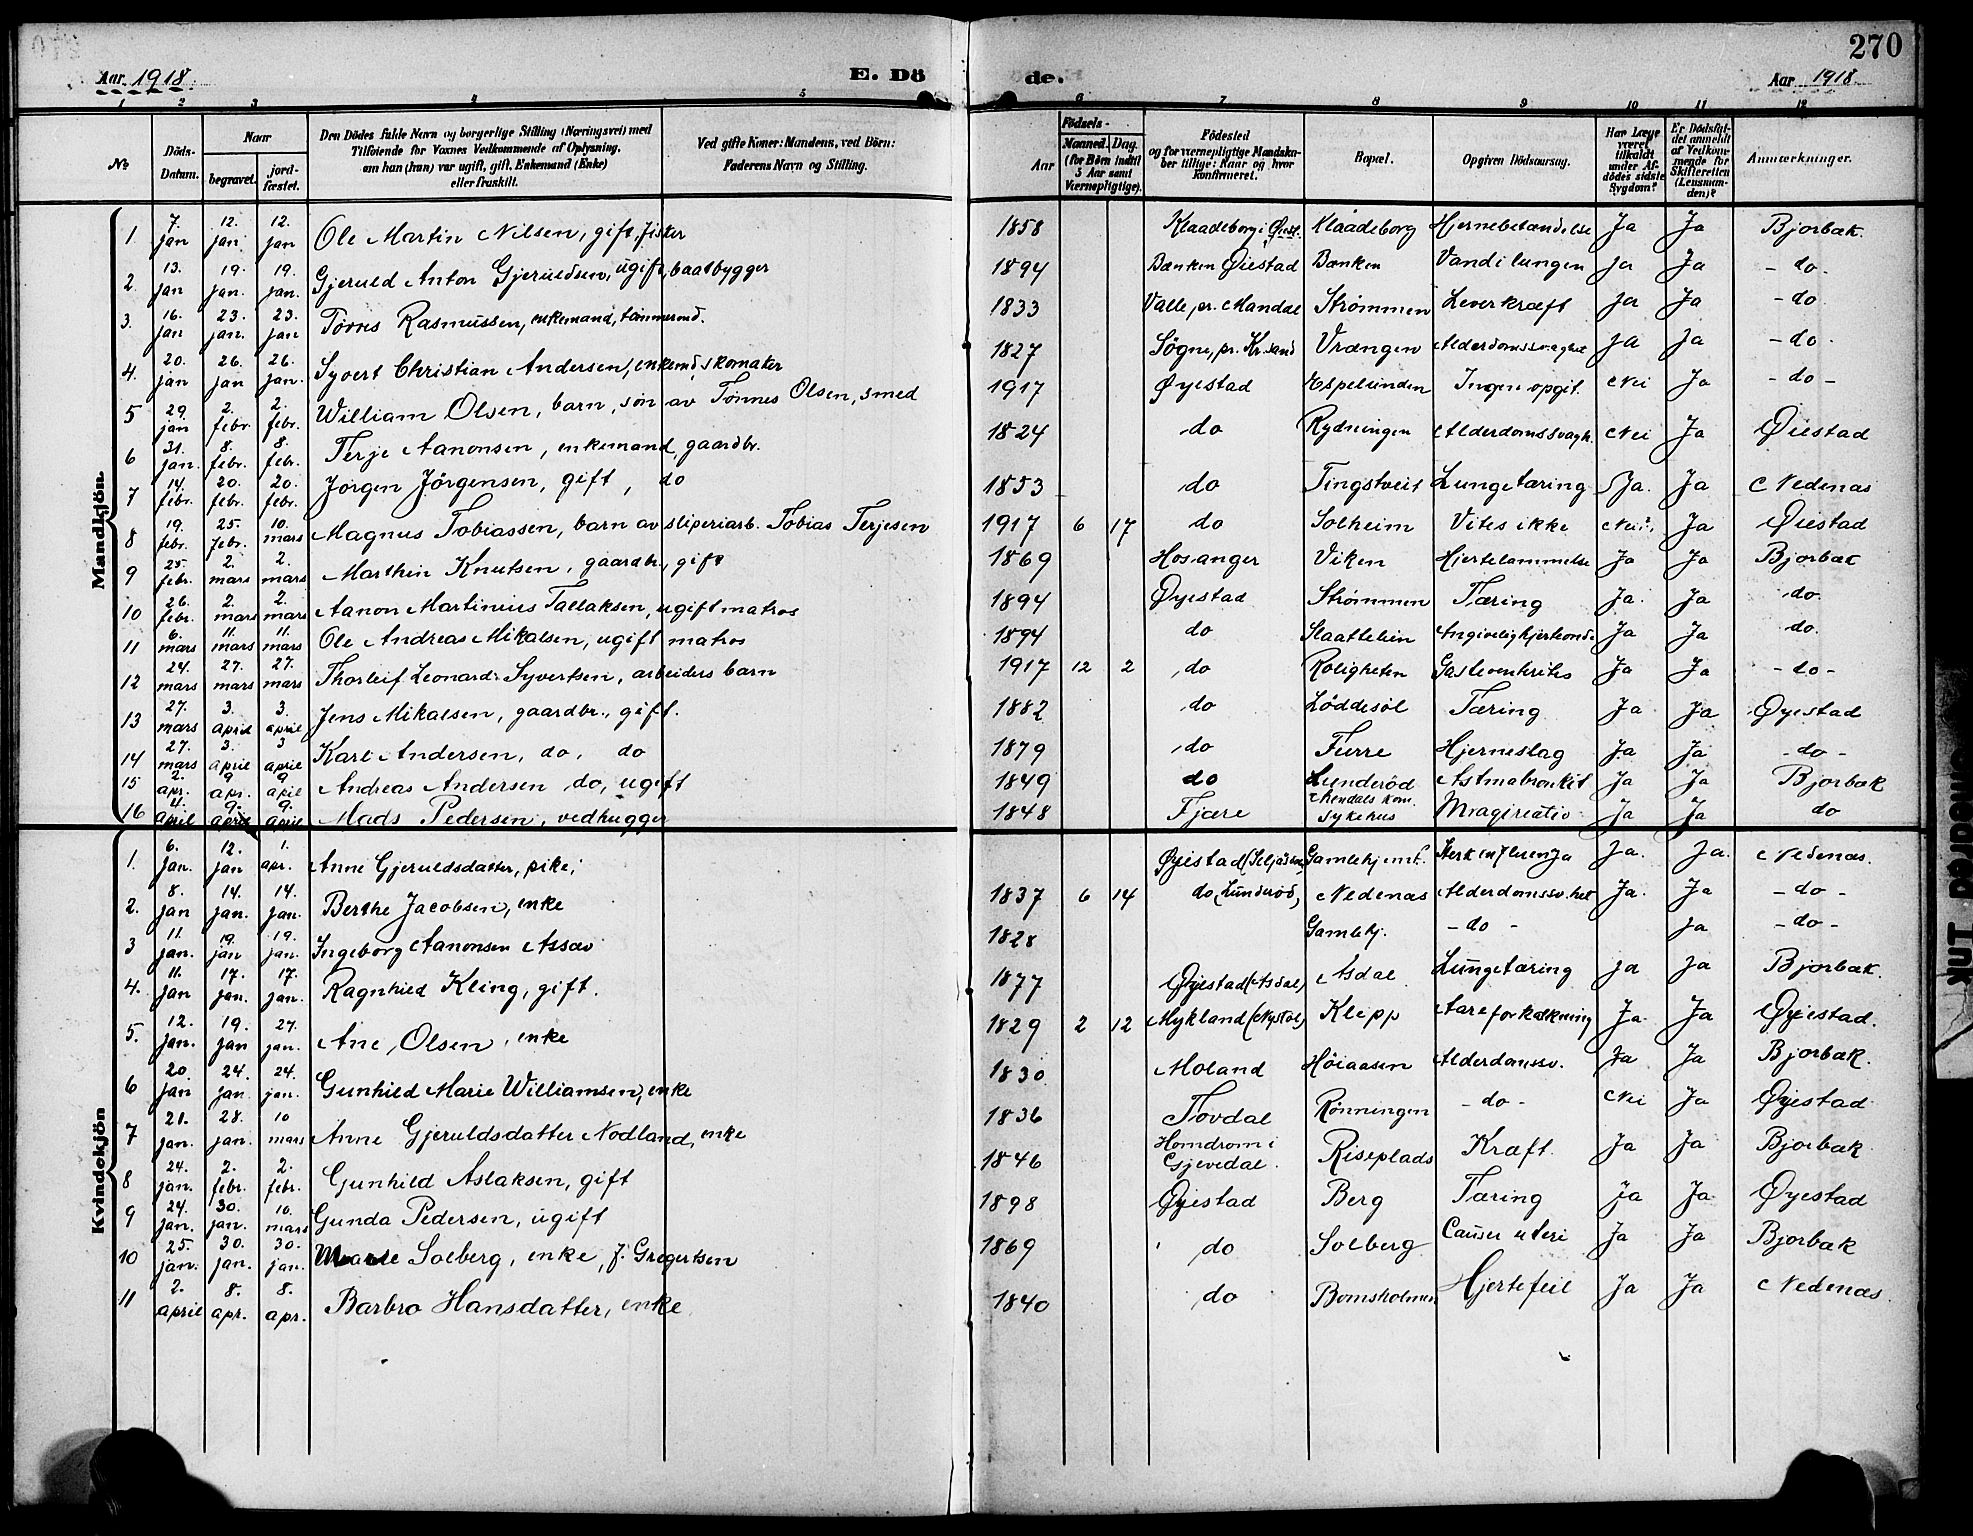 270
Aar 1918. E. Dö de. Aar 1918
1 2 3 4 5 6 7 8 9 10 11 12
No Döds-Datum. Naar begravet. jord-fæstet. Den Dödes fulde Navn og borgerlige Stilling (Næringsvei) med Tilföiende for Voxnes Vedkommende af Oplysning, om han (hun) var ugift, gift, Enkemand (Enke) eller fraskilt. Ved gifte Koner: Mandens, ved Börn: Faderens Navn og Stilling. Födsels- Aar Maaned. Dag. (for Börn indtil 5 Aar samt Værnepligtige). Födested og for værnepligtige Mandskaber tillige: Naar og hvor konfirmeret. Bopæl. Opgiven Dödsaarsag. Har Læge været tilkaldt under Afdödes sidste Sygdom? Er Dödsfaldet anmeldt af Vedkommende for Skifteretten (Lensmanden)? Anmærkninger.
Mandkjön.
1 7. jan 12. jan. 12. jan Ole Martin Nilsen, gift, fisker 1858 Klaadeborg i Øiest. Klaadeborg Hjernebetændelse Ja Ja Bjorbæk.
2. 13. jan 19. jan. 19. jan. Gjeruld Anton Gjeruldsen, ugift, baatbygger 1894 Bænken Øiestad Bænken Vand i lungen Ja Ja - do -
3. 16. jan 23. jan. 23. jan Tørres Rasmussen, enkemand, tømmermd. 1833 Valle, pr. Mandal Strømmen Leverkræft Ja Ja - do
4. 20. jan 26. jan 26. jan. Syvert Christian Andersen, enkemd, skomaker 1827 Søgne, pr. Kr.sand Vrængen Alderdomssvaghed Ja Ja - do -
5 29. jan 2. febr 2. febr. William Olsen, barn, søn av Tønnes Olsen, smed 1917 Øyestad Espelunden Ingen opgit. Nei Ja - do -
6 31. jan. 8. febr. 8. febr. Terje Aanonsen, enkemand, gaardbr. 1824 do Rydningen Alderdomssvagh. Nei Ja Øiestad
7 14. febr. 20. febr. 20. febr. Jörgen Jörgensen, gift, do 1853 do Tingstveit Lungetæring Ja. Ja Nedenæs
8 19. febr. 25. febr. 10. mars Magnus Tobiassen, barn av sliperiarb. Tobias Terjesen 1917 6 17 do Solheim Vites ikke Nei Ja Øiestad
9 25. febr. 2. mars 2. mars Marthin Knutsen, gaardbr., gift 1869 Hosanger Viken Hjertelammelse Ja Ja Bjorbæk
10 26. febr. 2. mars 2. mars Aanon Martinius Tallaksen, ugift matros 1894 Øyestad Strømmen Tæring Ja. Ja do
11 6. mars 11. mars 11. mars Ole Andreas Mikalsen, ugift matros 1894 do Slaattelien Angivelig hjerteonde Ja Ja do.
12 24. mars 27. mars 27. mars Thorleif Leonard Syvertsen, arbeiders barn 1917 12 2 do Roligheten Ja Ja - do -
13 27. mars 3. april 3. april Jens Mikalsen, gaardbr., gift. 1882 do Løddesøl Tæring Ja Ja Øyestad
14 27. mars 3. april 3 april Karl Andersen, do, do 1879 do Furre Hjerneslag Ja Ja - do -
15 2. apr. 9 apr. 9 april Andreas Andersen do, ugift 1849 do Lunderöd Astmabronkit Ja Ja Bjorbæk
16 4. april 9. april 9. april Mads Pedersen, vedhugger 1848 Fjære Arendals kom. sykehus Ja Ja do
Kvindekjön
1. 6. jan. 12. jan 1. apr. Anne Gjeruldsdatter, pike, Øyestad Gamlehjemt. Influenza Ja. Ja. Nedenæs.
2. 8. jan 14. jan. 14. jan. Berthe Jacobsen, enke 1837 6 14 do (Lunderöd) Nedenæs Alderdomssv.het Ja. Ja - do -
3 11. jan. 19. jan 19. jan. Ingeborg Aanonsen Assav 1828 Gamlehj. - do - Ja - do -
4. 11. jan 17. jan. 17. jan. Ragnhild Kling, gift. 1877 Øyestad (Asdal) Asdal Lungetæring Ja Ja Bjorbæk.
5. 12. jan. 19. jan 27. jan. Ane Olsen, enke 1829 2 12 Mykland Klepp Aareforkalkning Ja. Ja Øyestad.
6 20. jan 24. jan 24. jan. Gunhild Marie Williamsen, enke 1830 Moland Höiaasen Alderdomssv. Ja Ja Bjorbæk.
7 21. jan. 28. jan. 10 mars Anne Gjeruldsdatter Nodland, enke 1836 Tovdal Rønningen - do - Nei Ja Øyestad
8 24. jan. 2. febr. 2. febr. Gunhild Aslaksen, gift 1846 Homdrom i Gjevedal. Riseplads Kræft. Ja Ja Bjorbæk
9 24. jan. 30. jan. 10. mars Gunda Pedersen, ugift 1898 Øyestad Berg Tæring Ja Ja Øyestad
10 25. jan. 30. jan. 30. jan. Marie Solberg, enke, f. Gregertsen 1869 do Solberg Cancer uteri Ja Ja Bjorbæk
11 2. april 8. apr. 8. apr. Barbro Hansdatter, enke 1840 do Bomsholmen Hjertefeil Ja Ja Nedenæs